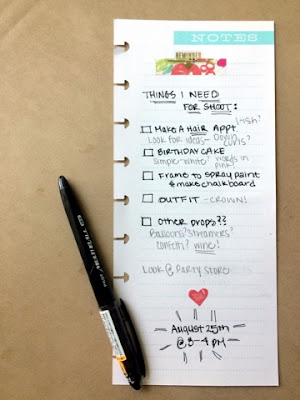 NOTES
REMINDER
THINGS I NEED
FOR SHOOT:
MAKE A HAIR APPT
lash?
Look for ideas - Down
curls?
BIRTHDAY CAKE
simple-white? words in
pink?
FRAME TO SPRAY PAINT
& MAKE CHALKBOARD
OUTFIT - CROWN!
OTHER PROPS??
Balloons? streamers?
confetti? wine!
LOOK @ PARTY STORE
August 25th
@ 3-4 PM
PILOT